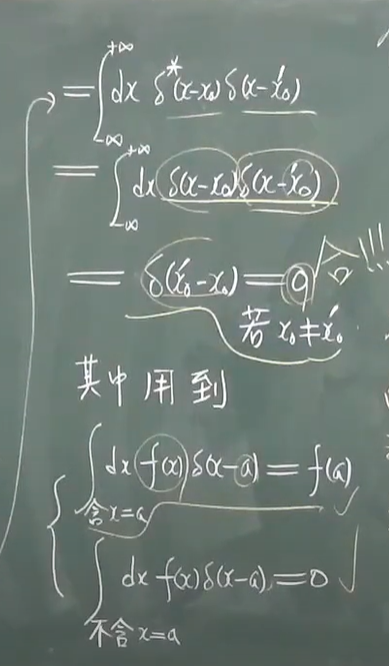 = ∫_{-∞}^{+∞} dx δ*(x-x₀) δ(x-x₀′)
= ∫_{-∞}^{+∞} dx δ(x-x₀) δ(x-x₀′)
= δ(x₀′-x₀) = 0 !!!
若 x₀≠x₀′
其中用到
∫_{含x=a} dx f(x) δ(x-a) = f(a) ✓
∫_{不含x=a} dx f(x) δ(x-a) = 0 ✓